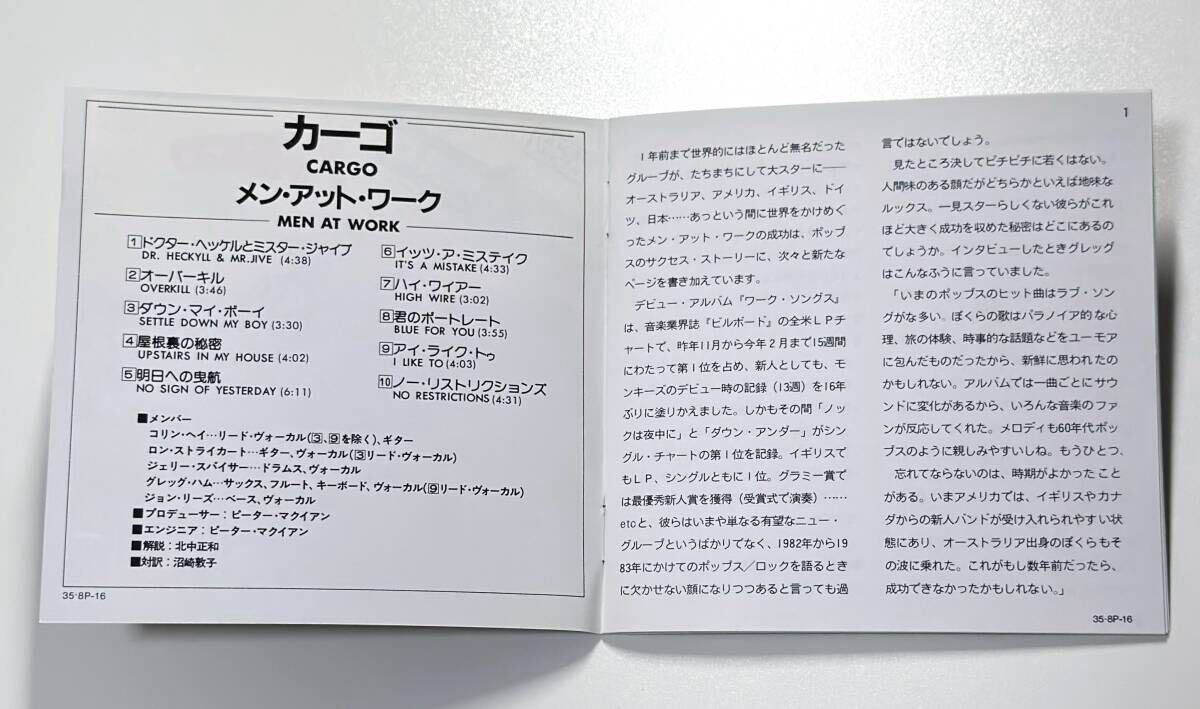 カーゴ
CARGO
メン・アット・ワーク
MEN AT WORK
1 ドクター・ヘッケルとミスター・ジャイブ
DR. HECKYLL & MR.JIVE (4:38)
2 オーバーキル
OVERKILL (3:46)
3 ダウン・マイ・ボーイ
SETTLE DOWN MY BOY (3:30)
4 屋根裏の秘密
UPSTAIRS IN MY HOUSE (4:02)
5 明日への曳航
NO SIGN OF YESTERDAY (6:11)
6 イッツ・ア・ミステイク
IT'S A MISTAKE (4:33)
7 ハイ・ワイアー
HIGH WIRE (3:02)
8 君のポートレート
BLUE FOR YOU (3:55)
9 アイ・ライク・トゥ
I LIKE TO (4:03)
10 ノー・リストリクションズ
NO RESTRICTIONS (4:31)
■メンバー
コリン・ヘイ…リード・ヴォーカル(3、9を除く)、ギター
ロン・ストライカート…ギター、ヴォーカル(3リード・ヴォーカル)
ジェリー・スパイザー…ドラムス、ヴォーカル
グレッグ・ハム…サックス、フルート、キーボード、ヴォーカル(9リード・ヴォーカル)
ジョン・リーズ…ベース、ヴォーカル
■プロデューサー：ピーター・マクイアン
■エンジニア：ピーター・マクイアン
■解説：北中正和
■対訳：沼崎敦子
35・8P-16
1
1年前まで世界的にはほとんど無名だった
グループが、たちまちにして大スターに――
オーストラリア、アメリカ、イギリス、ドイ
ツ、日本……あっという間に世界をかけめぐ
ったメン・アット・ワークの成功は、ポップ
スのサクセス・ストーリーに、次々と新たな
ページを書き加えています。
デビュー・アルバム『ワーク・ソングス』
は、音楽業界誌『ビルボード』の全米LPチ
ャートで、昨年11月から今年2月まで15週間
にわたって第1位を占め、新人としても、モ
ンキーズのデビュー時の記録（13週）を16年
ぶりに塗りかえました。しかもその間「ノッ
クは夜中に」と「ダウン・アンダー」がシン
グル・チャートの第1位を記録。イギリスで
もLP、シングルともに1位。グラミー賞で
は最優秀新人賞を獲得（受賞式で演奏）……
etcと、彼らはいまや単なる有望なニュー・
グループというばかりでなく、1982年から19
83年にかけてのポップス／ロックを語るとき
に欠かせない顔になりつつあると言っても過
言ではないでしょう。
見たところ決してピチピチに若くはない。
人間味のある顔だがどちらかといえば地味な
ルックス。一見スターらしくない彼らがこれ
ほど大きく成功を収めた秘密はどこにあるの
でしょうか。インタビューしたときグレッグ
はこんなふうに言っていました。
「いまのポップスのヒット曲はラブ・ソン
グがな多い。ぼくらの歌はパラノイア的な心
理、旅の体験、時事的な話題などをユーモア
に包んだものだったから、新鮮に思われたの
かもしれない。アルバムでは一曲ごとにサウ
ンドに変化があるから、いろんな音楽のファ
ンが反応してくれた。メロディも60年代ポッ
プスのように親しみやすいしね。もうひとつ、
忘れてならないのは、時期がよかったこと
がある。いまアメリカでは、イギリスやカナ
ダからの新人バンドが受け入れられやすい状
態にあり、オーストラリア出身のぼくらもそ
の波に乗れた。これがもし数年前だったら、
成功できなかったかもしれない。」
35・8P-16